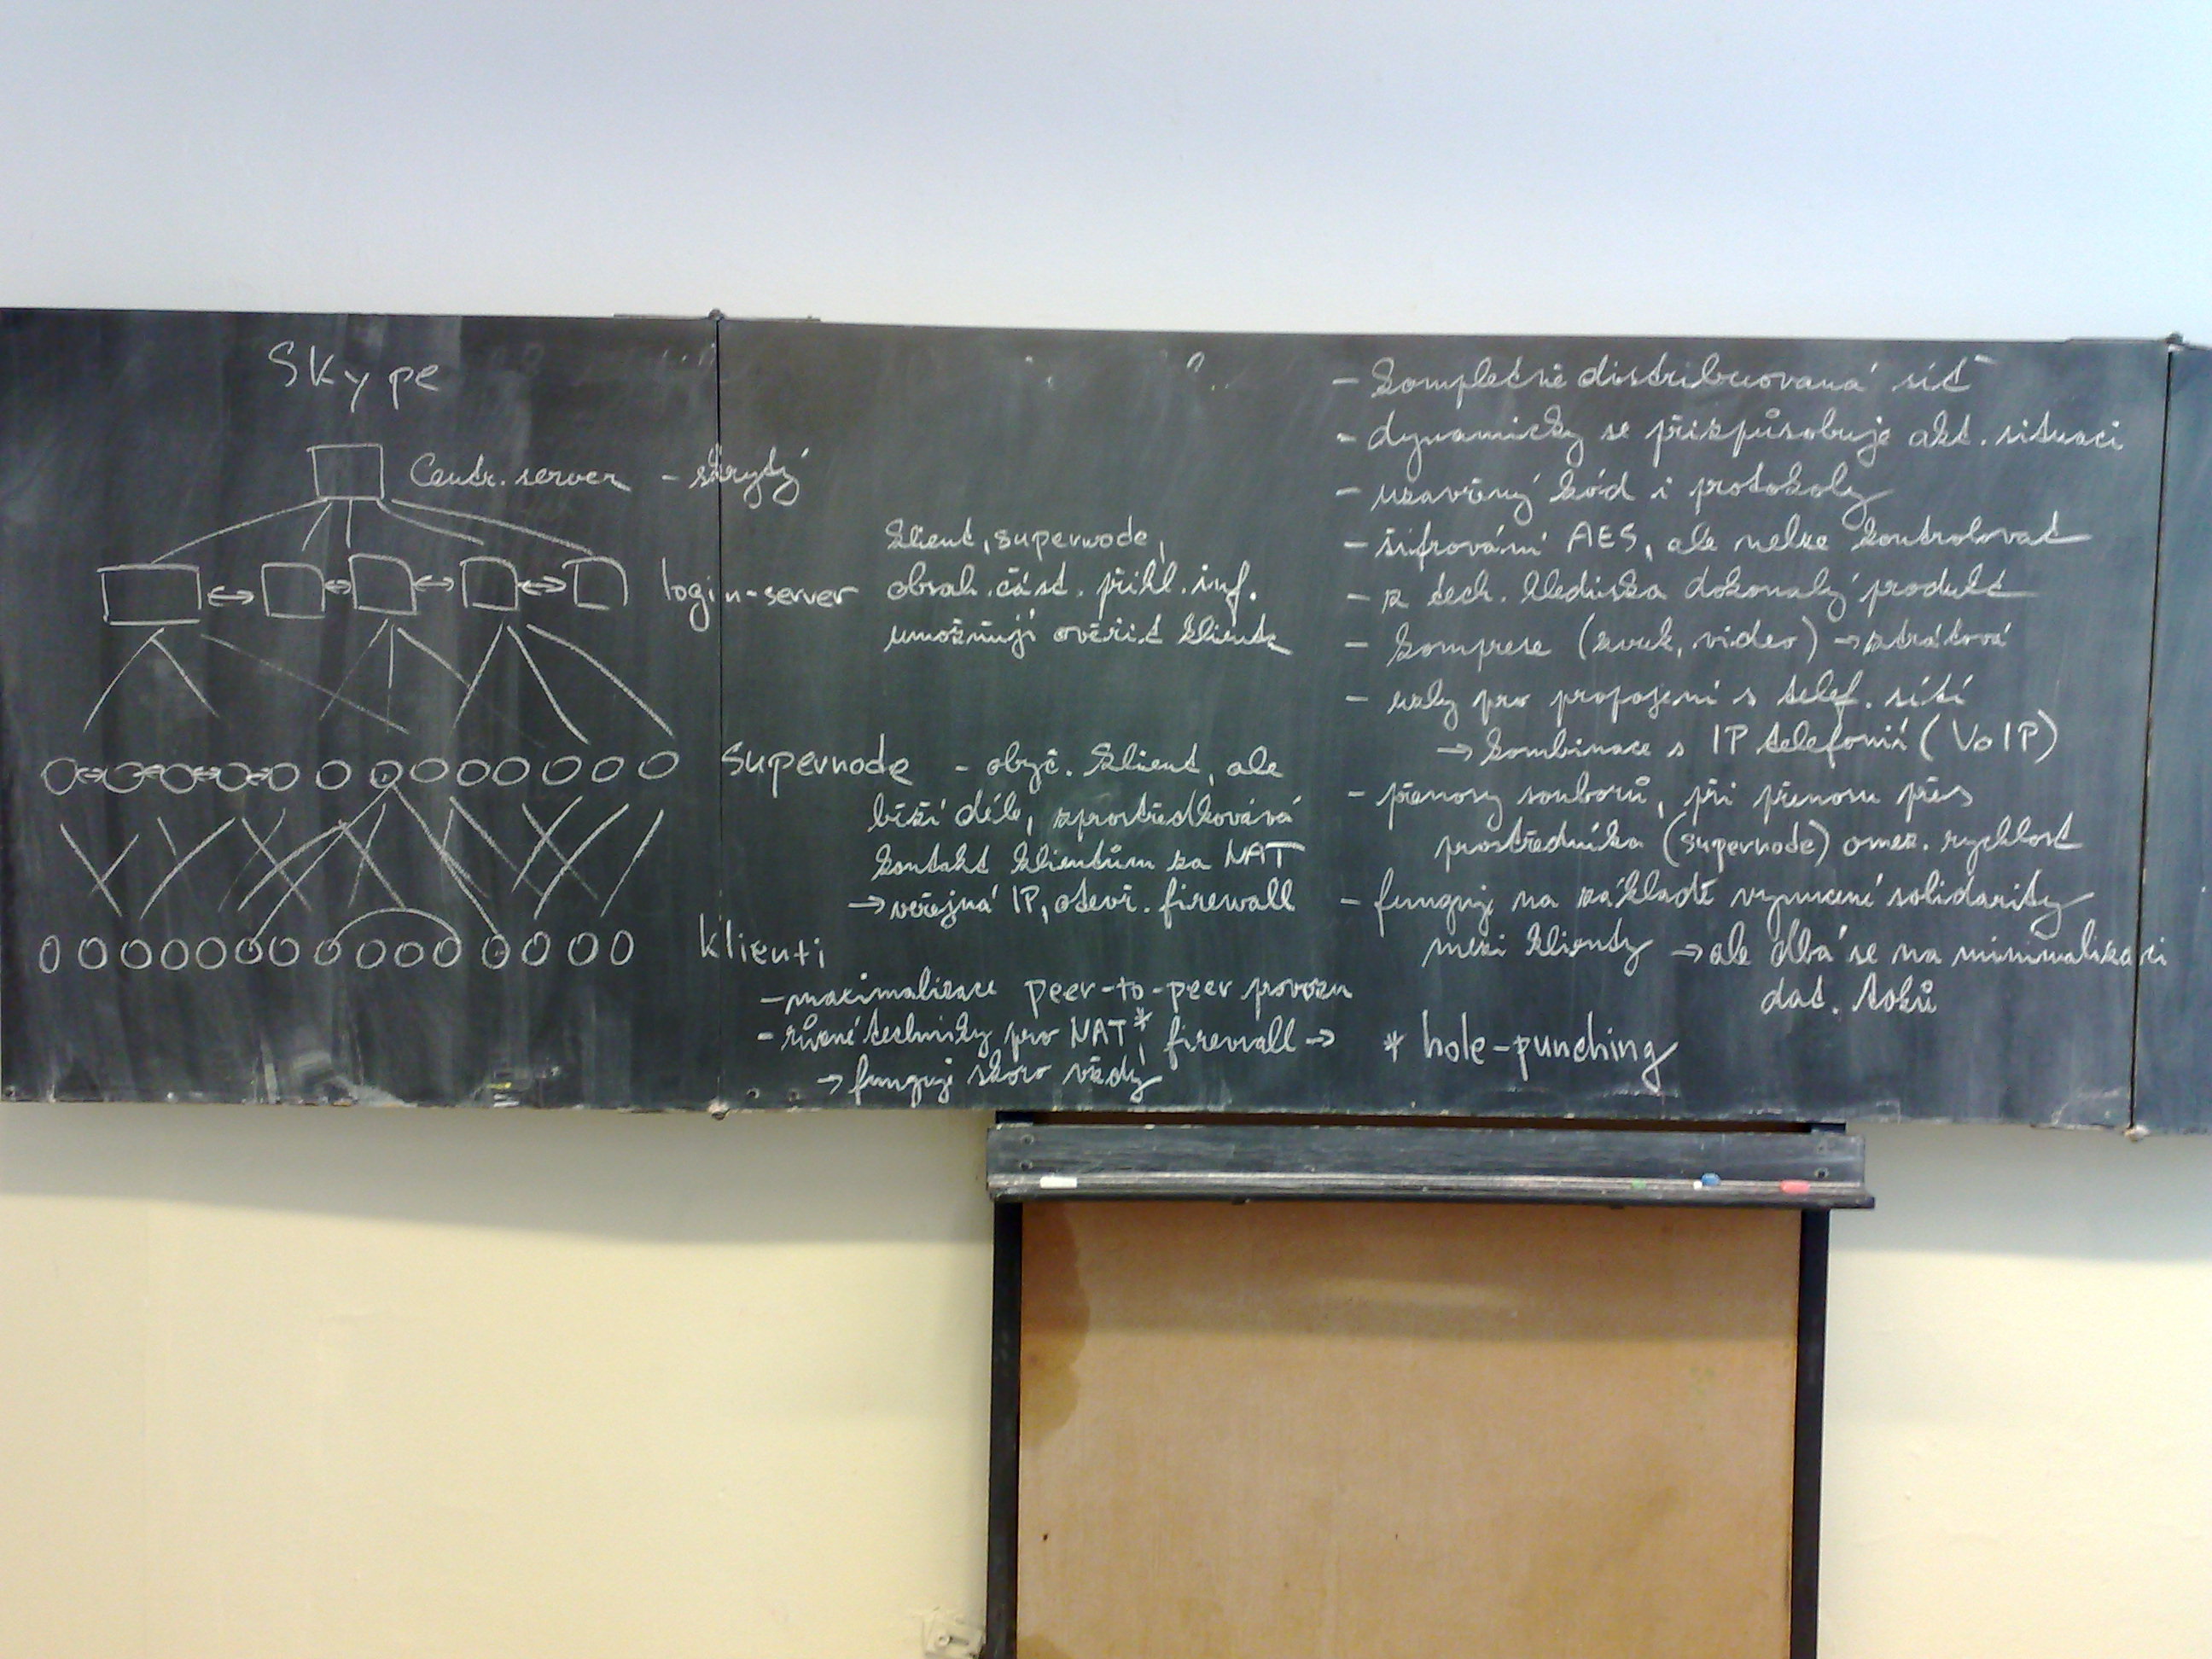 Skype
Centr. server - skrytý
login-server
klient, supernode,
obsah. část. přihl. inf.
umožňují ověřit klienta
supernode - obyč. klient, ale
běží déle, zprostředkovává
kontakt klientům za NAT
→ veřejná IP, otevř. firewall
klienti
- maximalizace peer-to-peer provozu
- různé techniky pro NAT*, firewall →
→ funguje skoro vždy
- kompletně distribuovaná síť
- dynamicky se přizpůsobuje akt. situaci
- uzavřený kód i protokoly
- šifrování AES, ale nelze kontrolovat
- z tech. hlediska dokonalý produkt
- komprese (zvuk, video) → ztrátová
- uzly pro propojení s telef. sítí
→ kombinace s IP telefonií (VoIP)
- přenosy souborů, při přenosu přes
prostředníka (supernode) omez. rychlost
- funguje na základě vynucené solidarity
mezi klienty → ale dbá se na minimalizaci
dat. toků
* hole-punching